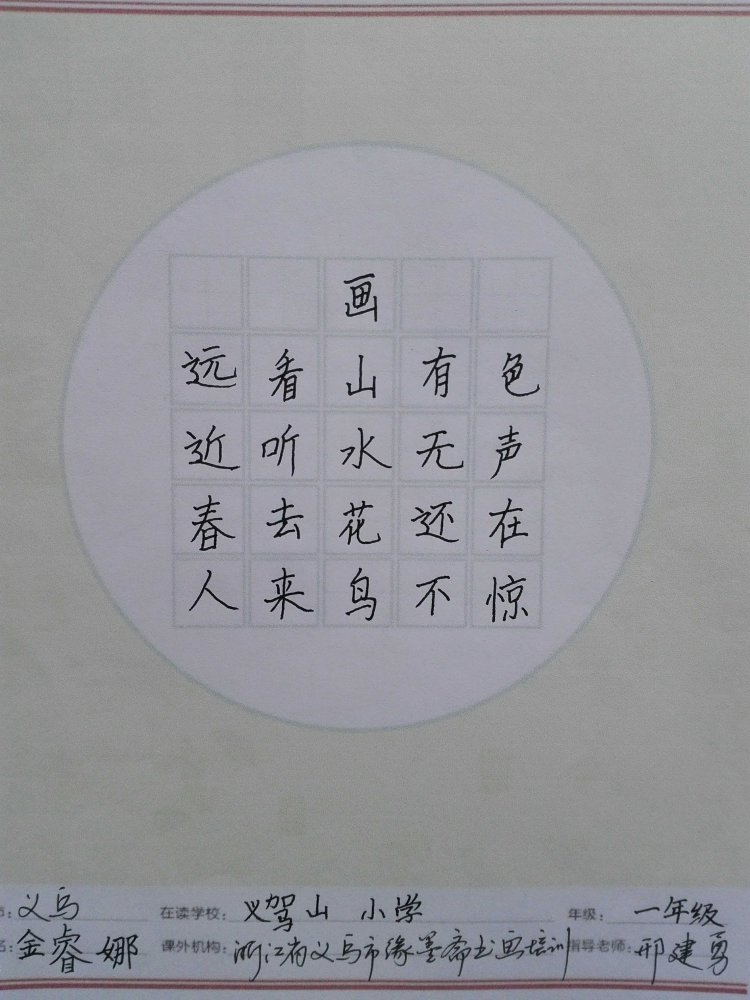 画
远看山有色
近听水无声
春去花还在
人来鸟不惊
市：义乌 在读学校：义驾山 小学 年级：一年级
名：金睿娜 课外机构：浙江省义乌市缘墨斋书画培训 指导老师：邢建勇